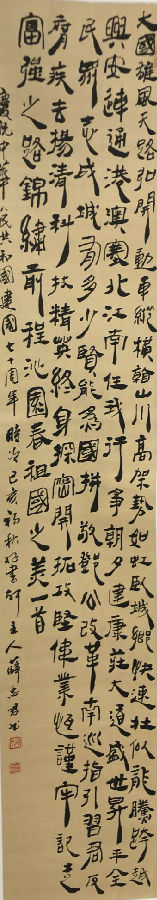 大國雄風天路引開動車縱橫韓山川高架勢如虹臥城鄉快速壯似龍騰跨越
興安連通港澳塞北江南任我行事朝夕建康莊大道盛世昇平全
民羽志成城有多少賢能為國拚敬鄧公改革南巡指引習君反
腐疾去揚清科技精英終身探密開拓攻堅使業恆謹牢記走
富強之路錦繡前程沁園春祖國之美一首
慶祝中華人民共和國建國七十周年時於己亥初秋好書軒主人薛